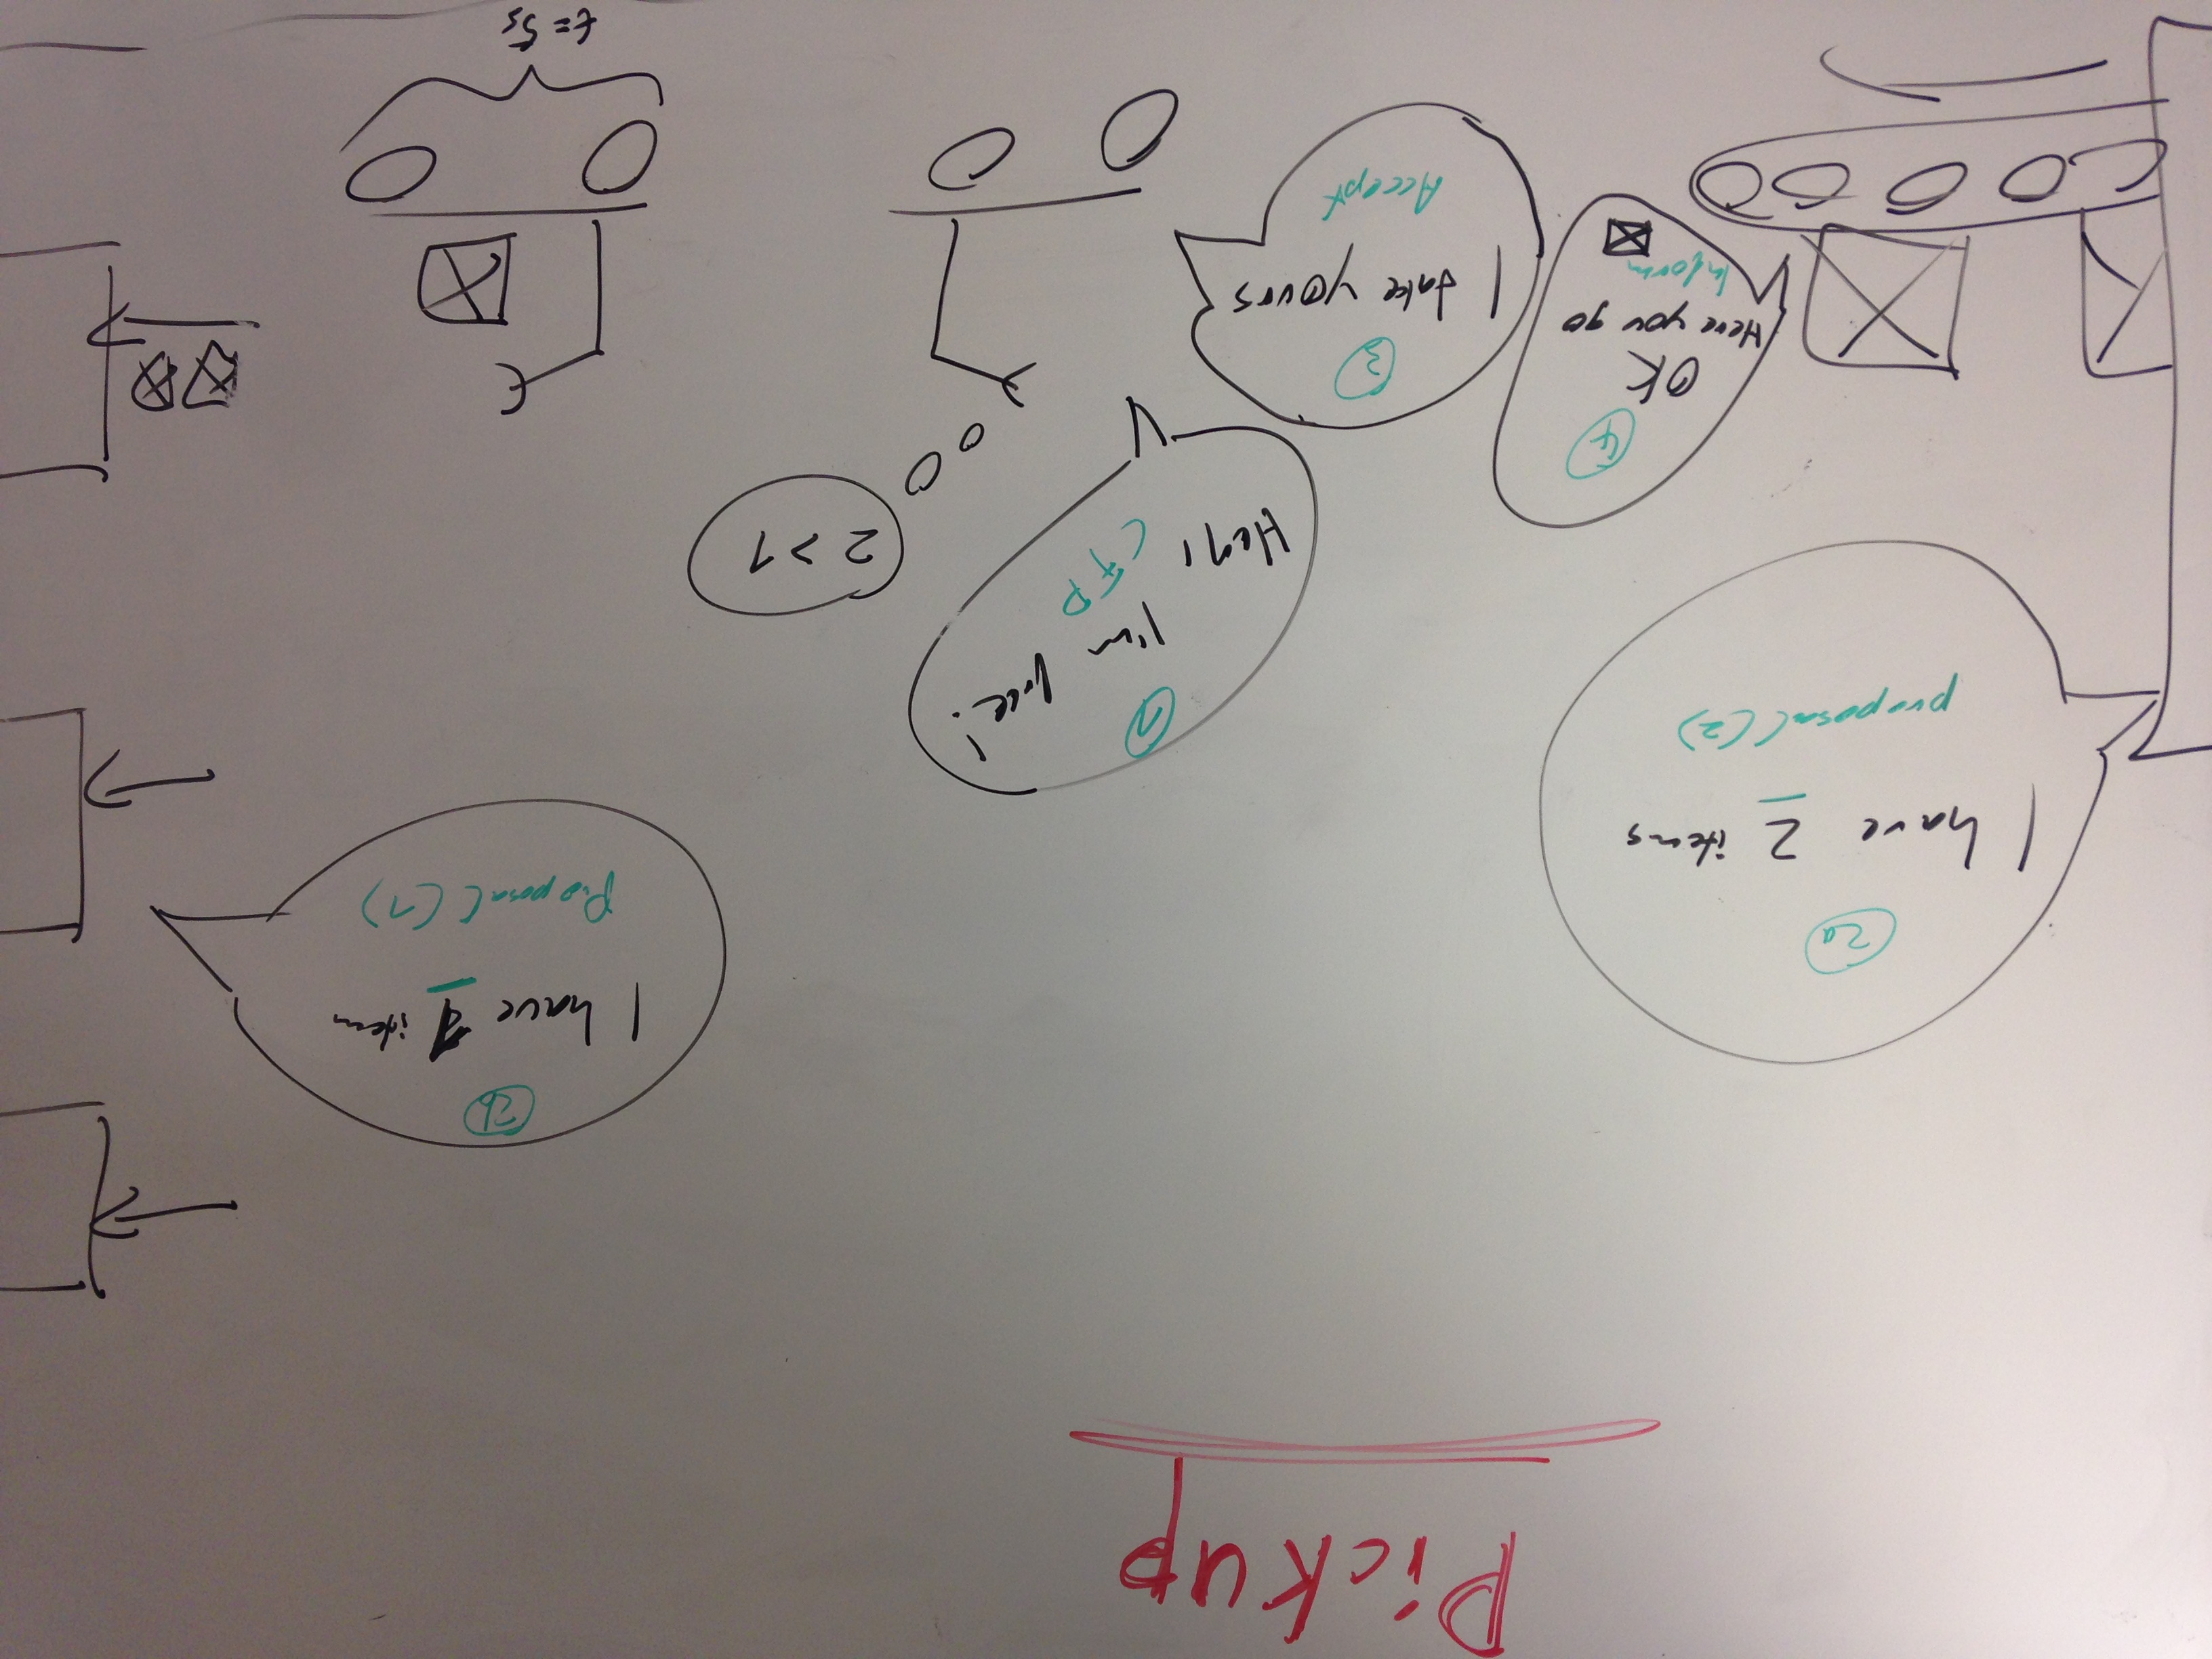 Pickup
2b
I have 1 item
Proposal (1)
2a
I have 2 items
proposal (2)
1
Hey, I'm free!
CFP
2 > 1
4
OK
Here you go
Inform
3
I take yours
Accept
t = 5s